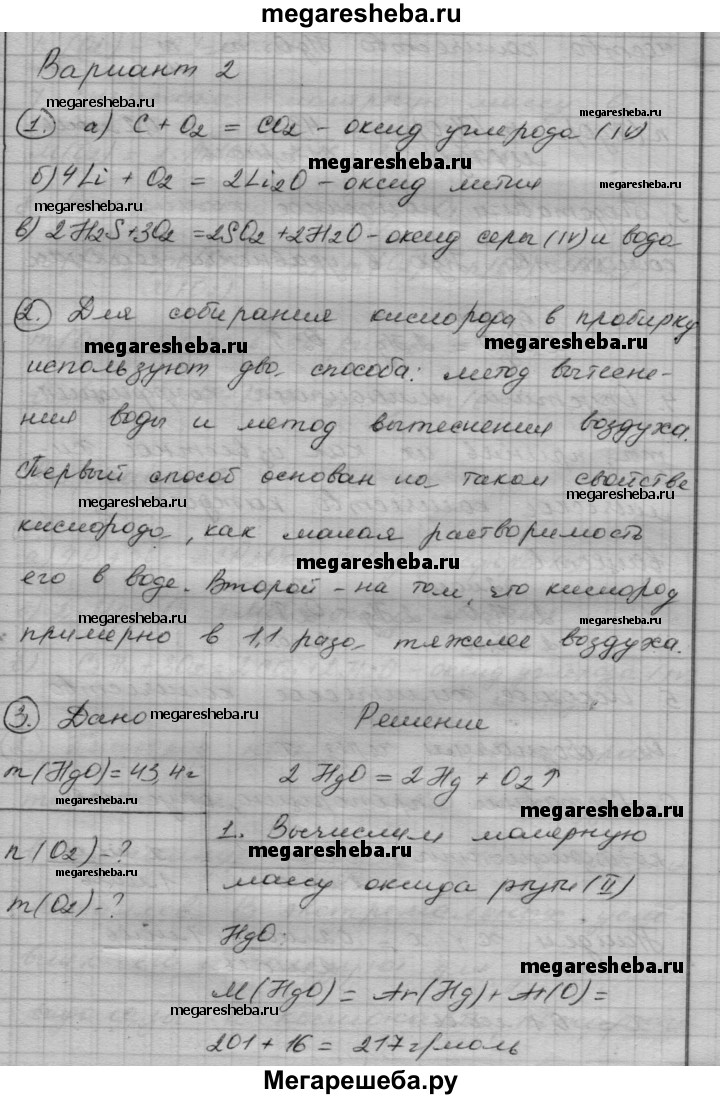 megaresheba.ru
Вариант 2
megaresheba.ru
megaresheba.ru
1. а) C + O2 = CO2 - оксид углерода (IV)
megaresheba.ru
б) 4Li + O2 = 2Li2O - оксид лития
megaresheba.ru
megaresheba.ru
в) 2H2S + 3O2 = 2SO2 + 2H2O - оксид серы (IV) и вода
2. Для собирания кислорода в пробирку
megaresheba.ru
megaresheba.ru
используют два способа: метод вытесне-
ния воды и метод вытеснения воздуха.
Первый способ основан на таком свойстве
megaresheba.ru
megaresheba.ru
кислорода, как малая растворимость
megaresheba.ru
его в воде. Второй - на том, что кислород
megaresheba.ru
megaresheba.ru
примерно в 1,1 раза тяжелее воздуха.
megaresheba.ru
3. Дано
megaresheba.ru
Решение
m(HgO) = 43,4 г
2 HgO = 2 Hg + O2↑
megaresheba.ru
megaresheba.ru
n(O2) - ?
1. Вычислим молярную
megaresheba.ru
массу оксида ртути (II)
m(O2) - ?
HgO:
megaresheba.ru
M(HgO) = Ar(Hg) + Ar(O) =
megaresheba.ru
201 + 16 = 217 г/моль
Мегарешеба.ру